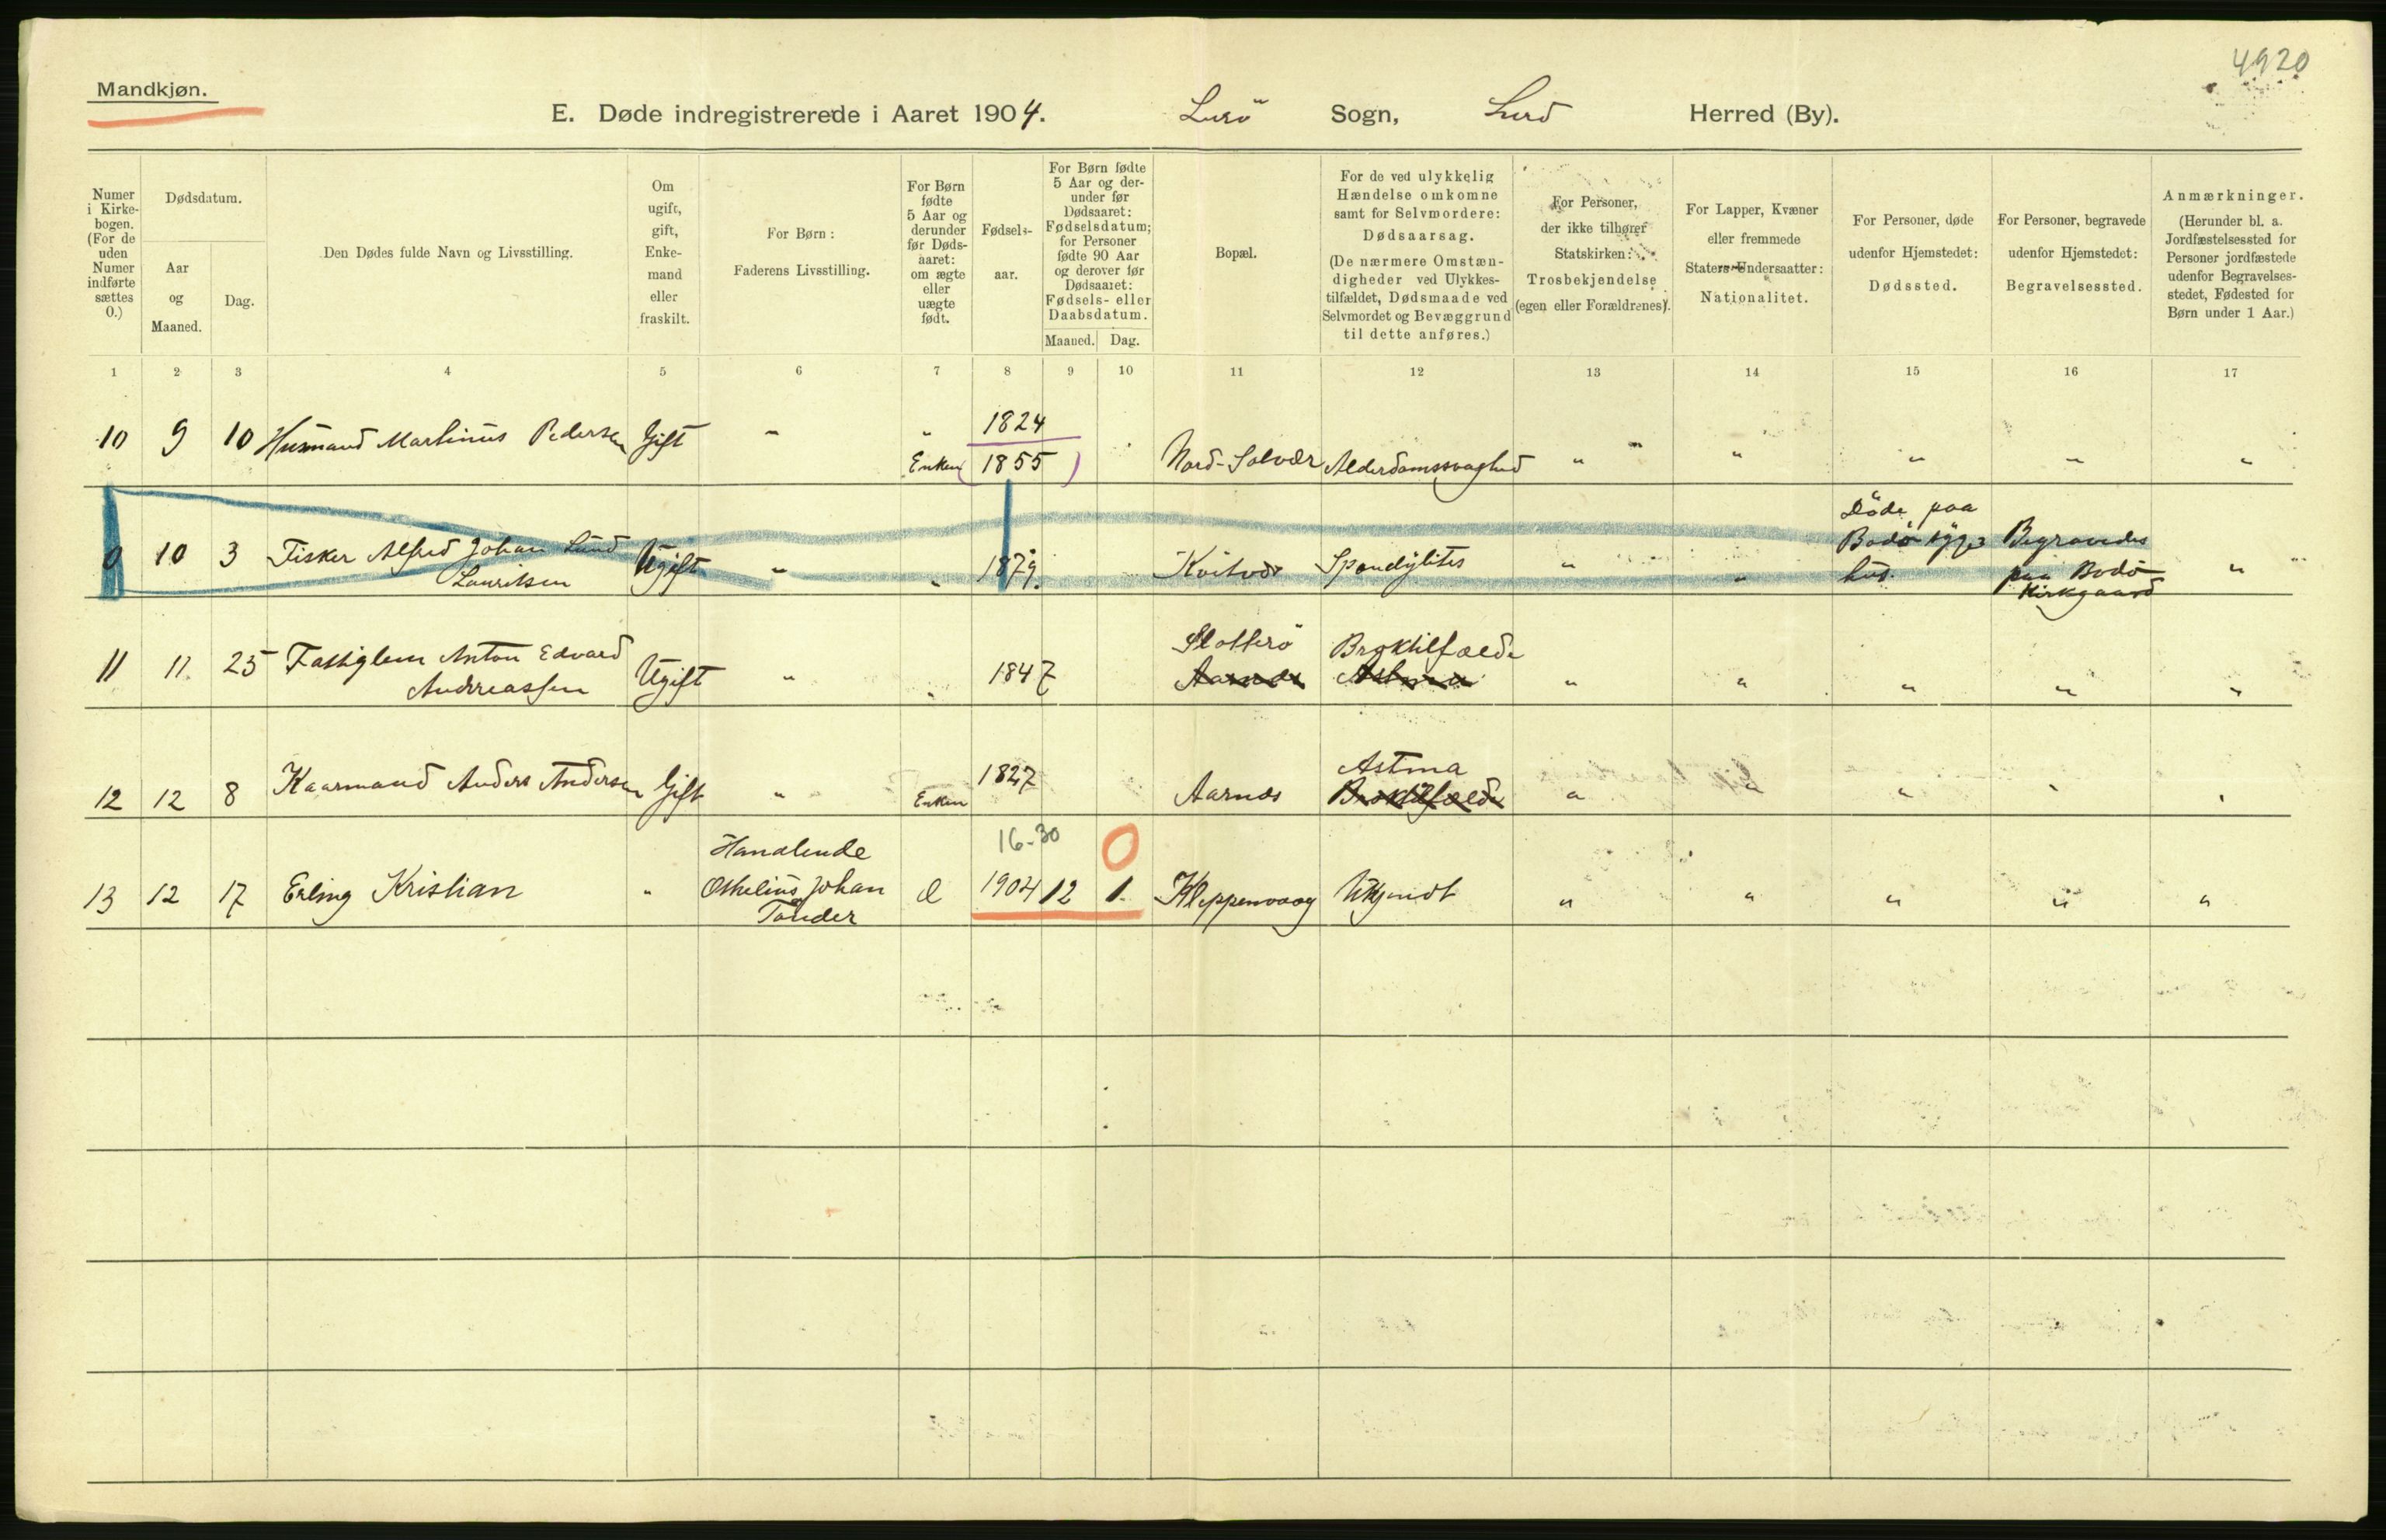 4920
Mandkjøn.
E. Døde indregistrerede i Aaret 1904. Lurö Sogn, Lurö Herred (By).
Numer i Kirkebogen. (For de uden Numer indførte sættes 0.)
Dødsdatum.
Aar og Maaned.
Dag.
Den Dødes fulde Navn og Livsstilling.
Om ugift, gift, Enkemand eller fraskilt.
For Børn:
Faderens Livsstilling.
For Børn fødte 5 Aar og derunder før Dødsaaret: om ægte eller uægte født.
Fødselsaar.
For Børn fødte 5 Aar og derunder før Dødsaaret: Fødselsdatum; for Personer fødte 90 Aar og derover før Dødsaaret: Fødsels- eller Daabsdatum.
Maaned. Dag.
Bopæl.
For de ved ulykkelig Hændelse omkomne samt for Selvmordere: Dødsaarsag.
(De nærmere Omstændigheder ved Ulykkestilfældet, Dødsmaade ved Selvmordet og Bevæggrund til dette anføres.)
For Personer, der ikke tilhører Statskirken: Trosbekjendelse (egen eller Forældrenes).
For Lapper, Kvæner eller fremmede Staters Undersaatter: Nationalitet.
For Personer, døde udenfor Hjemstedet: Dødssted.
For Personer, begravede udenfor Hjemstedet: Begravelsessted.
Anmærkninger.
(Herunder bl. a. Jordfæstelsessted for Personer jordfæstede udenfor Begravelsesstedet, Fødested for Børn under 1 Aar.)
1 2 3 4 5 6 7 8 9 10 11 12 13 14 15 16 17
1824
10 9 10 Husmand Martinus Pedersen Gift " "
Enken (1855) Nord-Solvær Alderdomssvaghed " " " " "
Döde paa
0 10 3 Fisker Alfred Johan Lund Ugift " " 1879. Kvitvær Spondylites " " Bodö syge Begravedes "
Lauritsen hus. paa Bodö
Kirkgaard
Slotterö Broktilfælde
11 11 25 Fattiglem Anton Edvard Ugift " " 1847 Aarnes Astma " " " " "
Andreassen
Astma
12 12 8 Kaarmand Anders Andersen Gift " Enken 1827 Aarnes Broktilfælde " " " "
Handlende 16-30 0
13 12 17 Erling Kristian " Othelius Johan 1904 12 1. Kleppenvaag Ukjendt " " " " "
Tönder